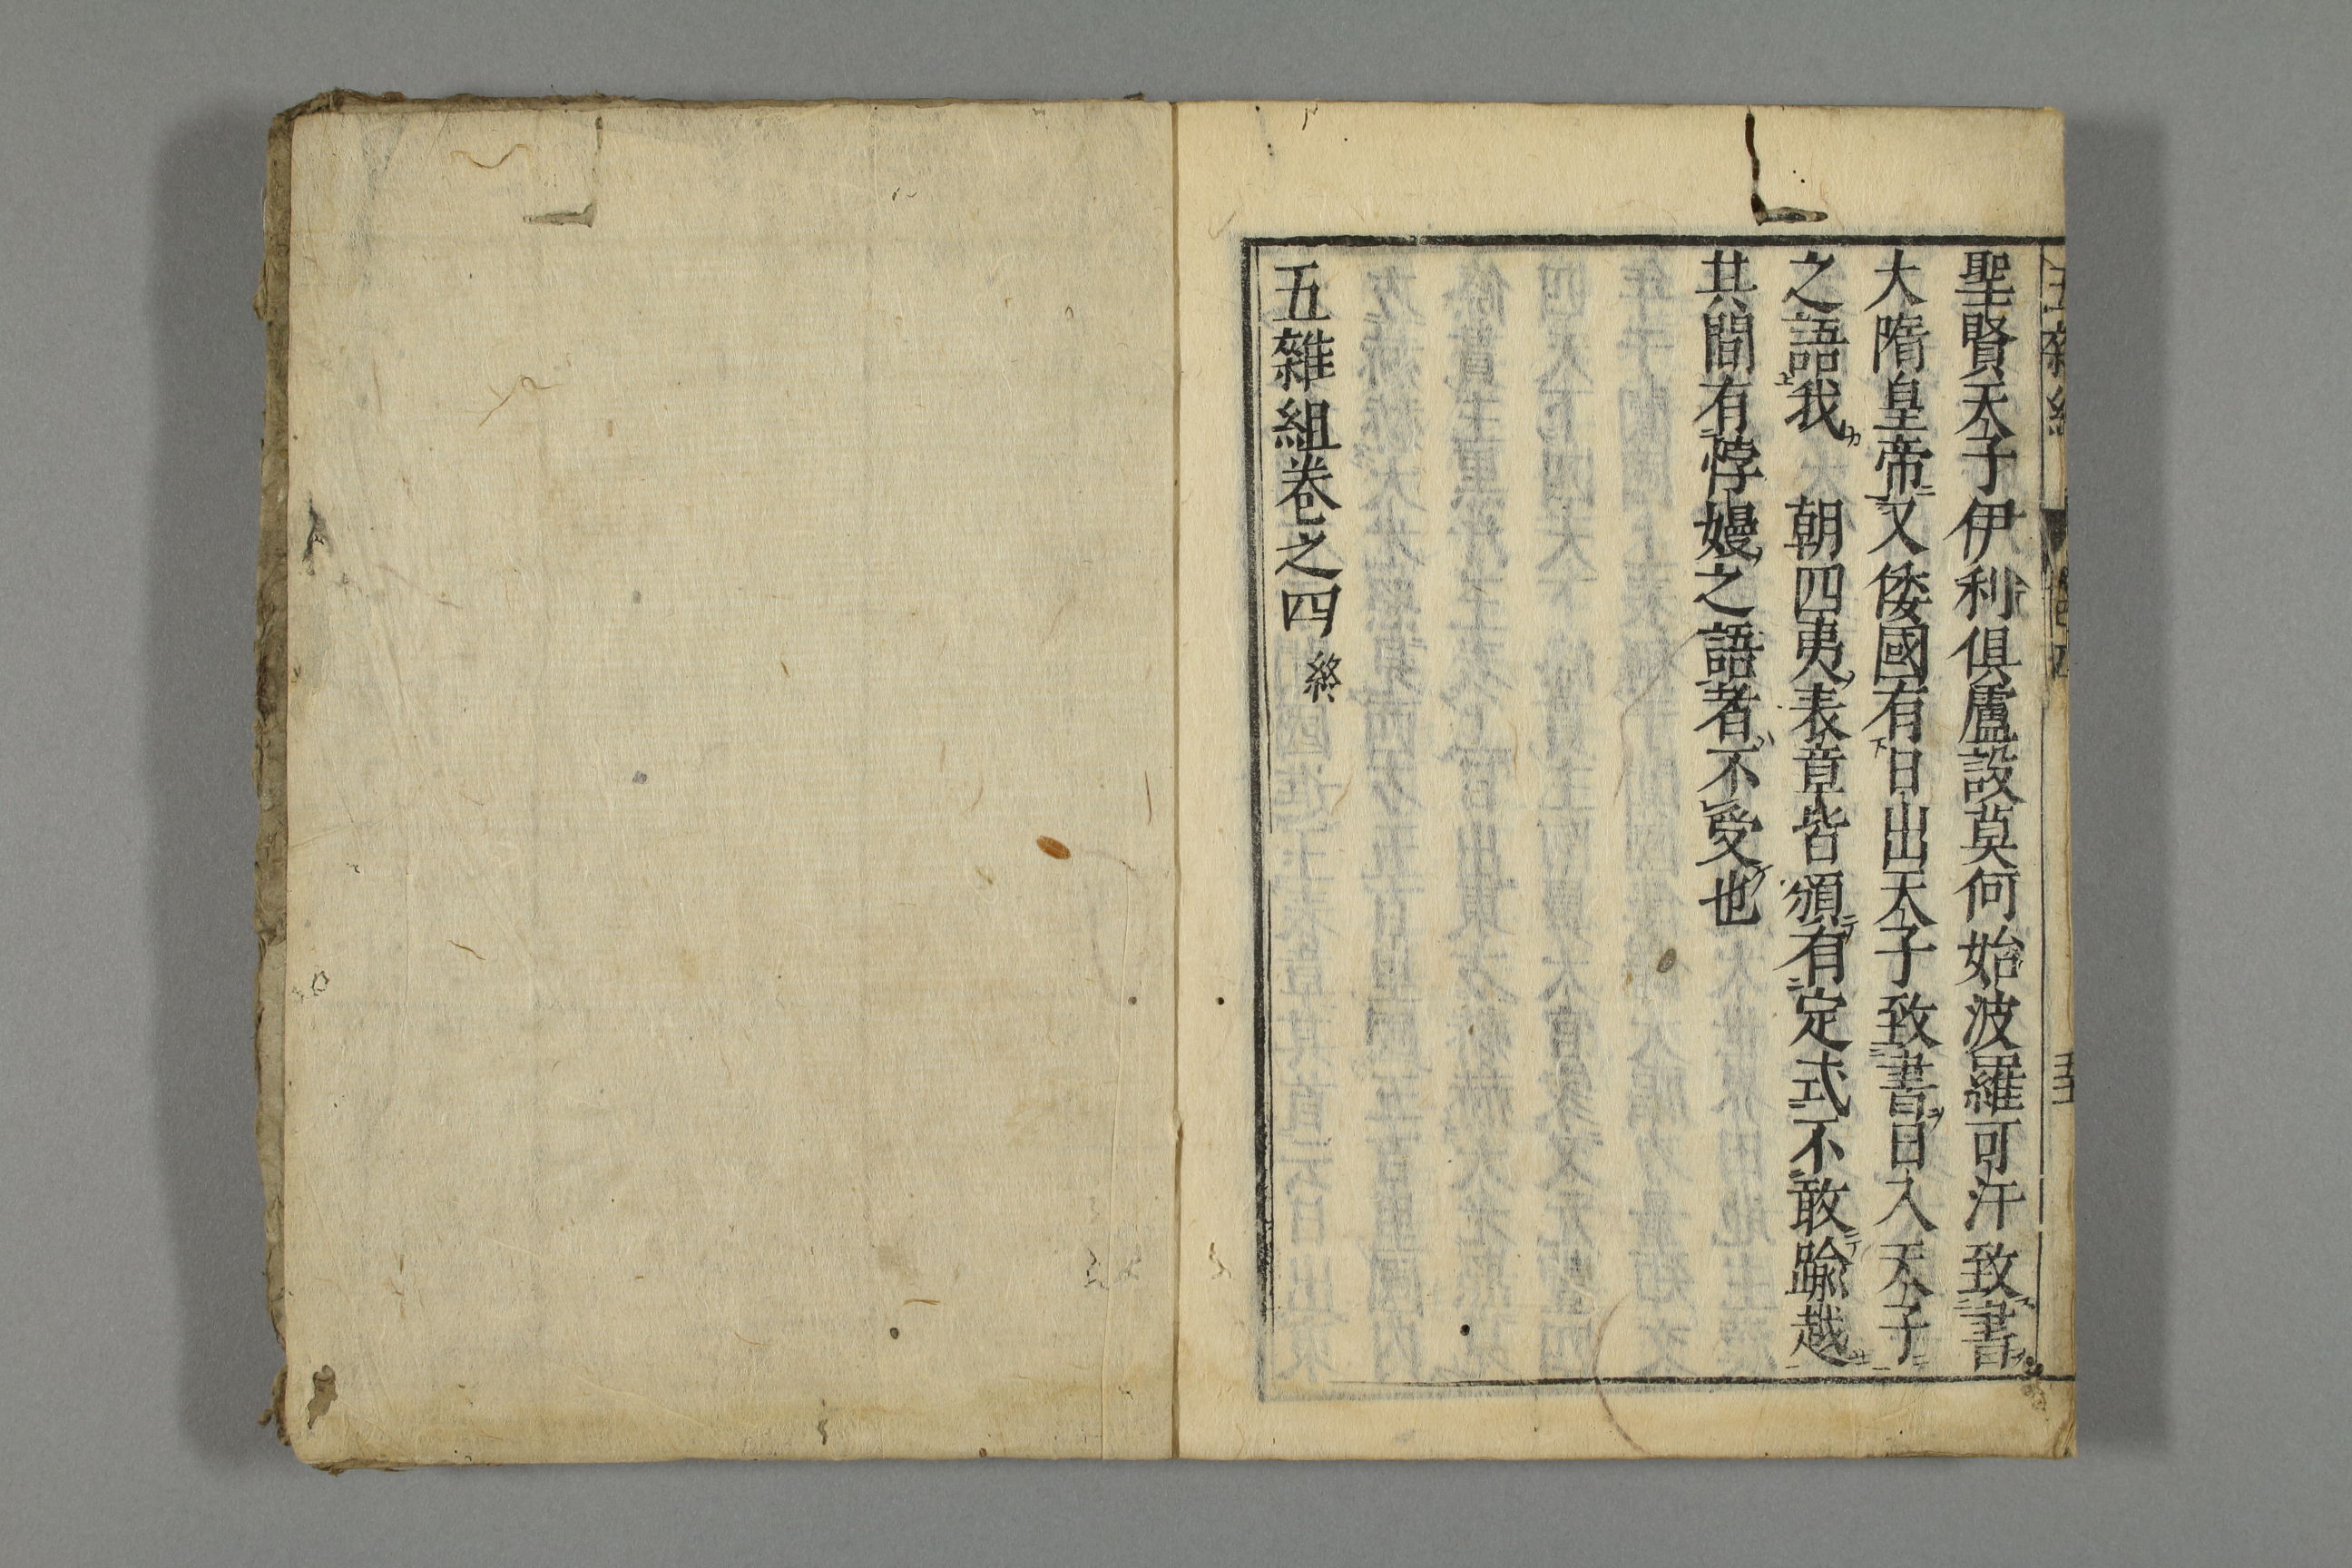 聖賢天子伊利俱盧設莫何始波羅可汗致書
大隋皇帝又倭國有日出天子致書日入天子
之語我　朝四夷表章皆頒有定式不敢踰越
其間有悖嫚之語者不受也
五雜組卷之四終